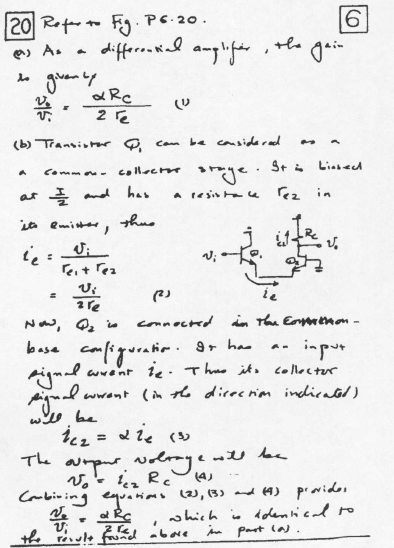 20 Refer to Fig. P6.20. 6
(a) As a differential amplifier, the gain
is given by
v_o/v_i = αR_C / 2r_e (1)
(b) Transistor Q₁ can be considered as a
a common-collector stage. It is biased
at I/2 and has a resistance r_e2 in
its emitter, thus
i_e = v_i / (r_e1 + r_e2)
= v_i / 2r_e (2)
v_i Q₁ Q₂ i_c2 R_C v_o i_e
Now, Q₂ is connected in the common-
base configuration. It has an input
signal current i_e. Thus its collector
signal current (in the direction indicated)
will be
i_c2 = α i_e (3)
The output voltage will be
v_o = i_c2 R_C (4)
Combining equations (2), (3) and (4) provides
v_o/v_i = αR_C / 2r_e, which is identical to
the result found above in part (a).